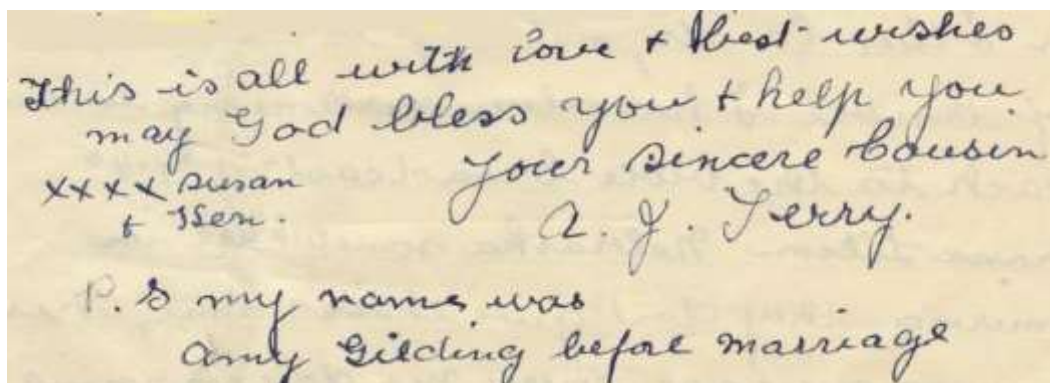 This is all with love & best wishes
may God bless you & help you.
Your sincere Cousin
xxxx Susan
& Ken.
A. J. Terry.
P.S my name was
Amy Gilding before marriage